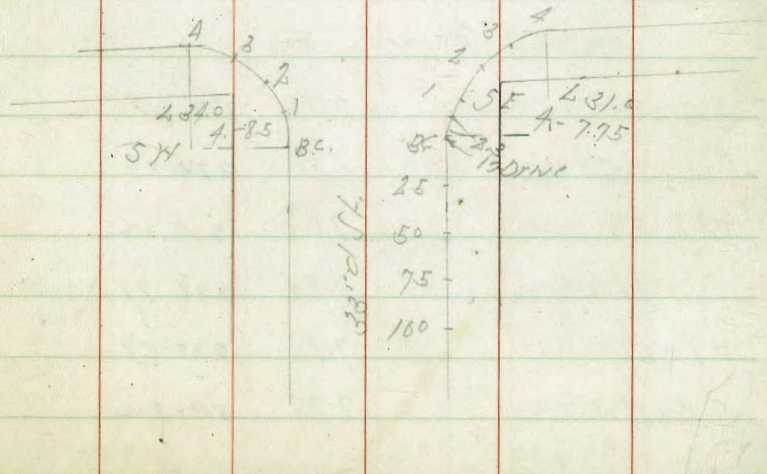 4
3
2
1
L 34.0
4.-8.5
SW
B.C.
4
3
2
1
SE
L 31.0
4.- 7.75
B.C.
Drive
25
50
75
100
33rd St.